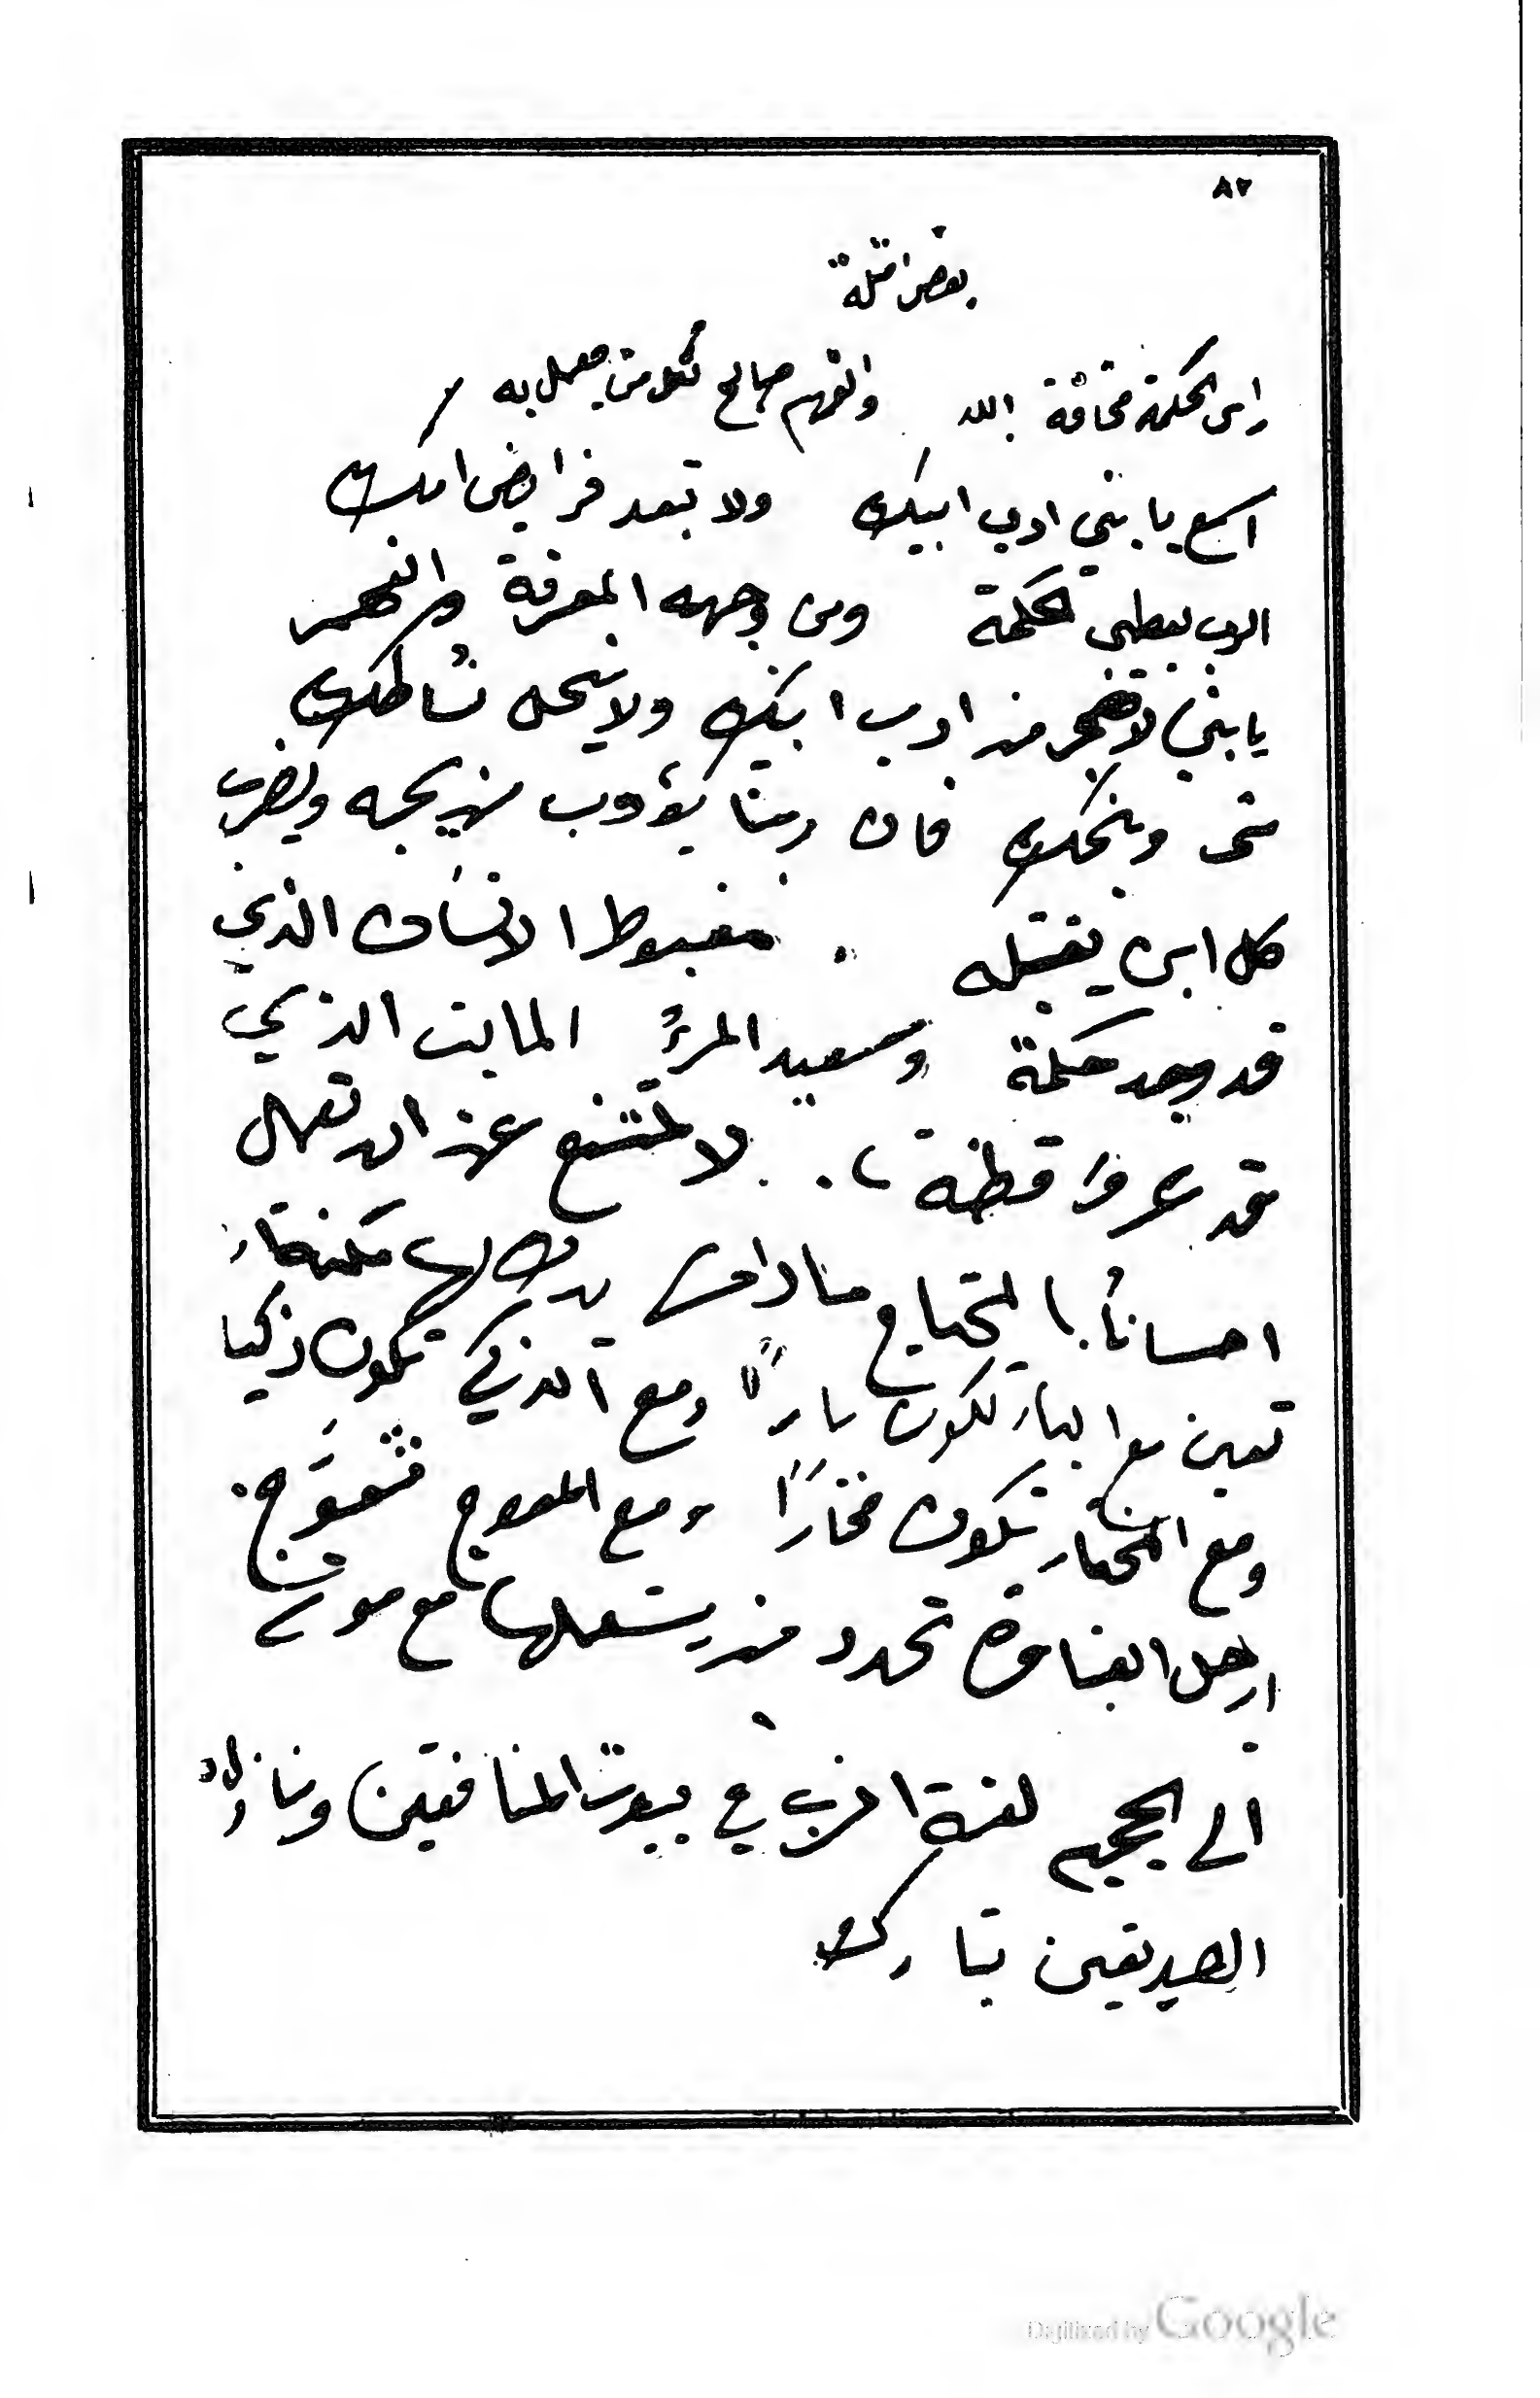 ٨٢
بعض امثلة
راس الحكمة مخافة الله والفهم صالح لكل من يعمل به
اسمع يا بني ادب ابيك ولا تبعد فرايض امك
الرب يعطي حكمة ومن وجهه المعرفة والفهم
يا بني لا تضجر من ادب ابيك ولا ينحل نشاطك
متى وبخك فان ربنا يؤدب من يحبه ويضرب
كل ابن يقبله مغبوط الانسان الذي
قد وجد حكمة وسعيد المرؤ المايت الذي
قد عرف فطنة لا تمتنع عن ان تعمل
احسانا بالمحتاج ما دامت يدك لها مكنة
تعين مع البار تكون بارًا ومع الذكي تكون زكيا
ومع المختار تكون مختارًا ومع المعوج تتعوج
ارجل الغباوة تحدد من يستعملها مع موت
الى الجحيم لعنة الرب في بيوت المنافقين ومنازل
الصديقين تبارك
Digitized by Google